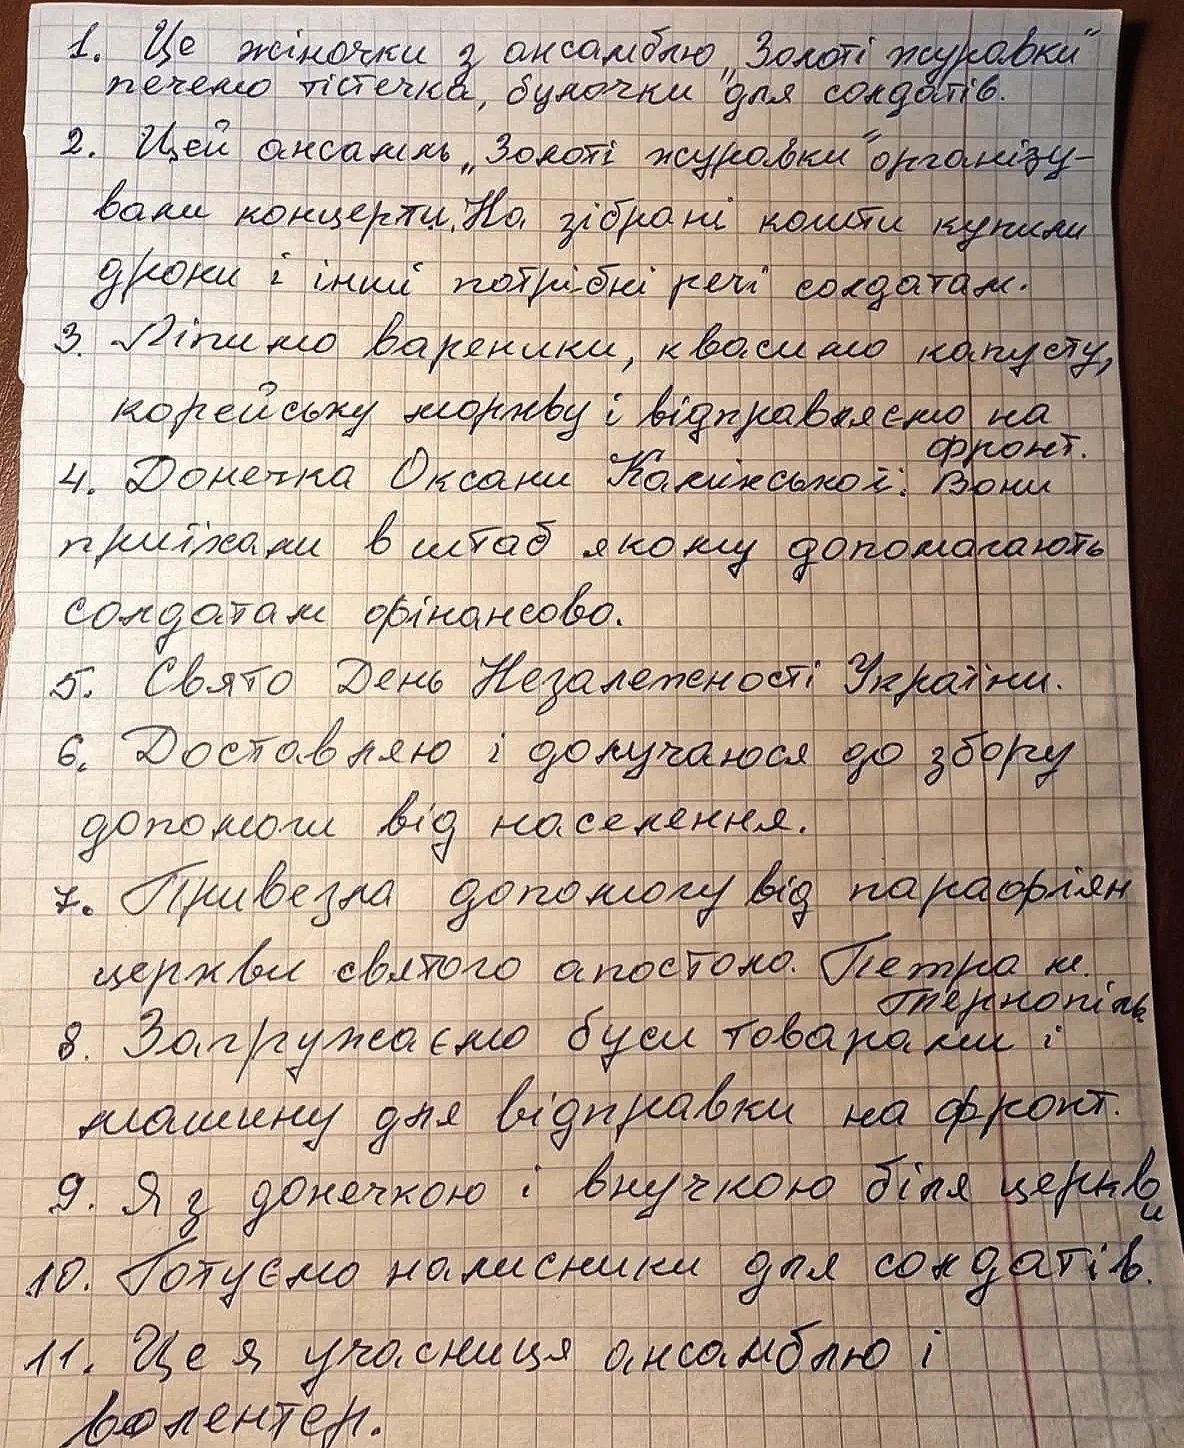 1. Це жіночки з ансамблю „Золоті журавки"
печемо тістечка, булочки для солдатів.
2. Цей ансамль „Золоті журавки" організу-
вали концерти. На зібрані кошти купили
дрони і інші потрібні речі солдатам.
3. Ліпимо вареники, квасимо капусту,
корейську моркву і відправляємо на
фронт.
4. Донечка Оксани Камінської. Вони
приїхали в штаб якому допомагають
солдатам фінансово.
5. Свято День Незалежності України.
6. Доставляю і долучаюся до збору
допомоги від населення.
7. Привезла допомогу від парафіян
церкви святого апостола. Петра м.
Тернопіль
8. Загружаємо буси товарами і
машину для відправки на фронт.
9. Я з донечкою і внучкою біля церкви
10. Готуємо налисники для солдатів.
11. Це я учасниця ансамблю і
волентер.